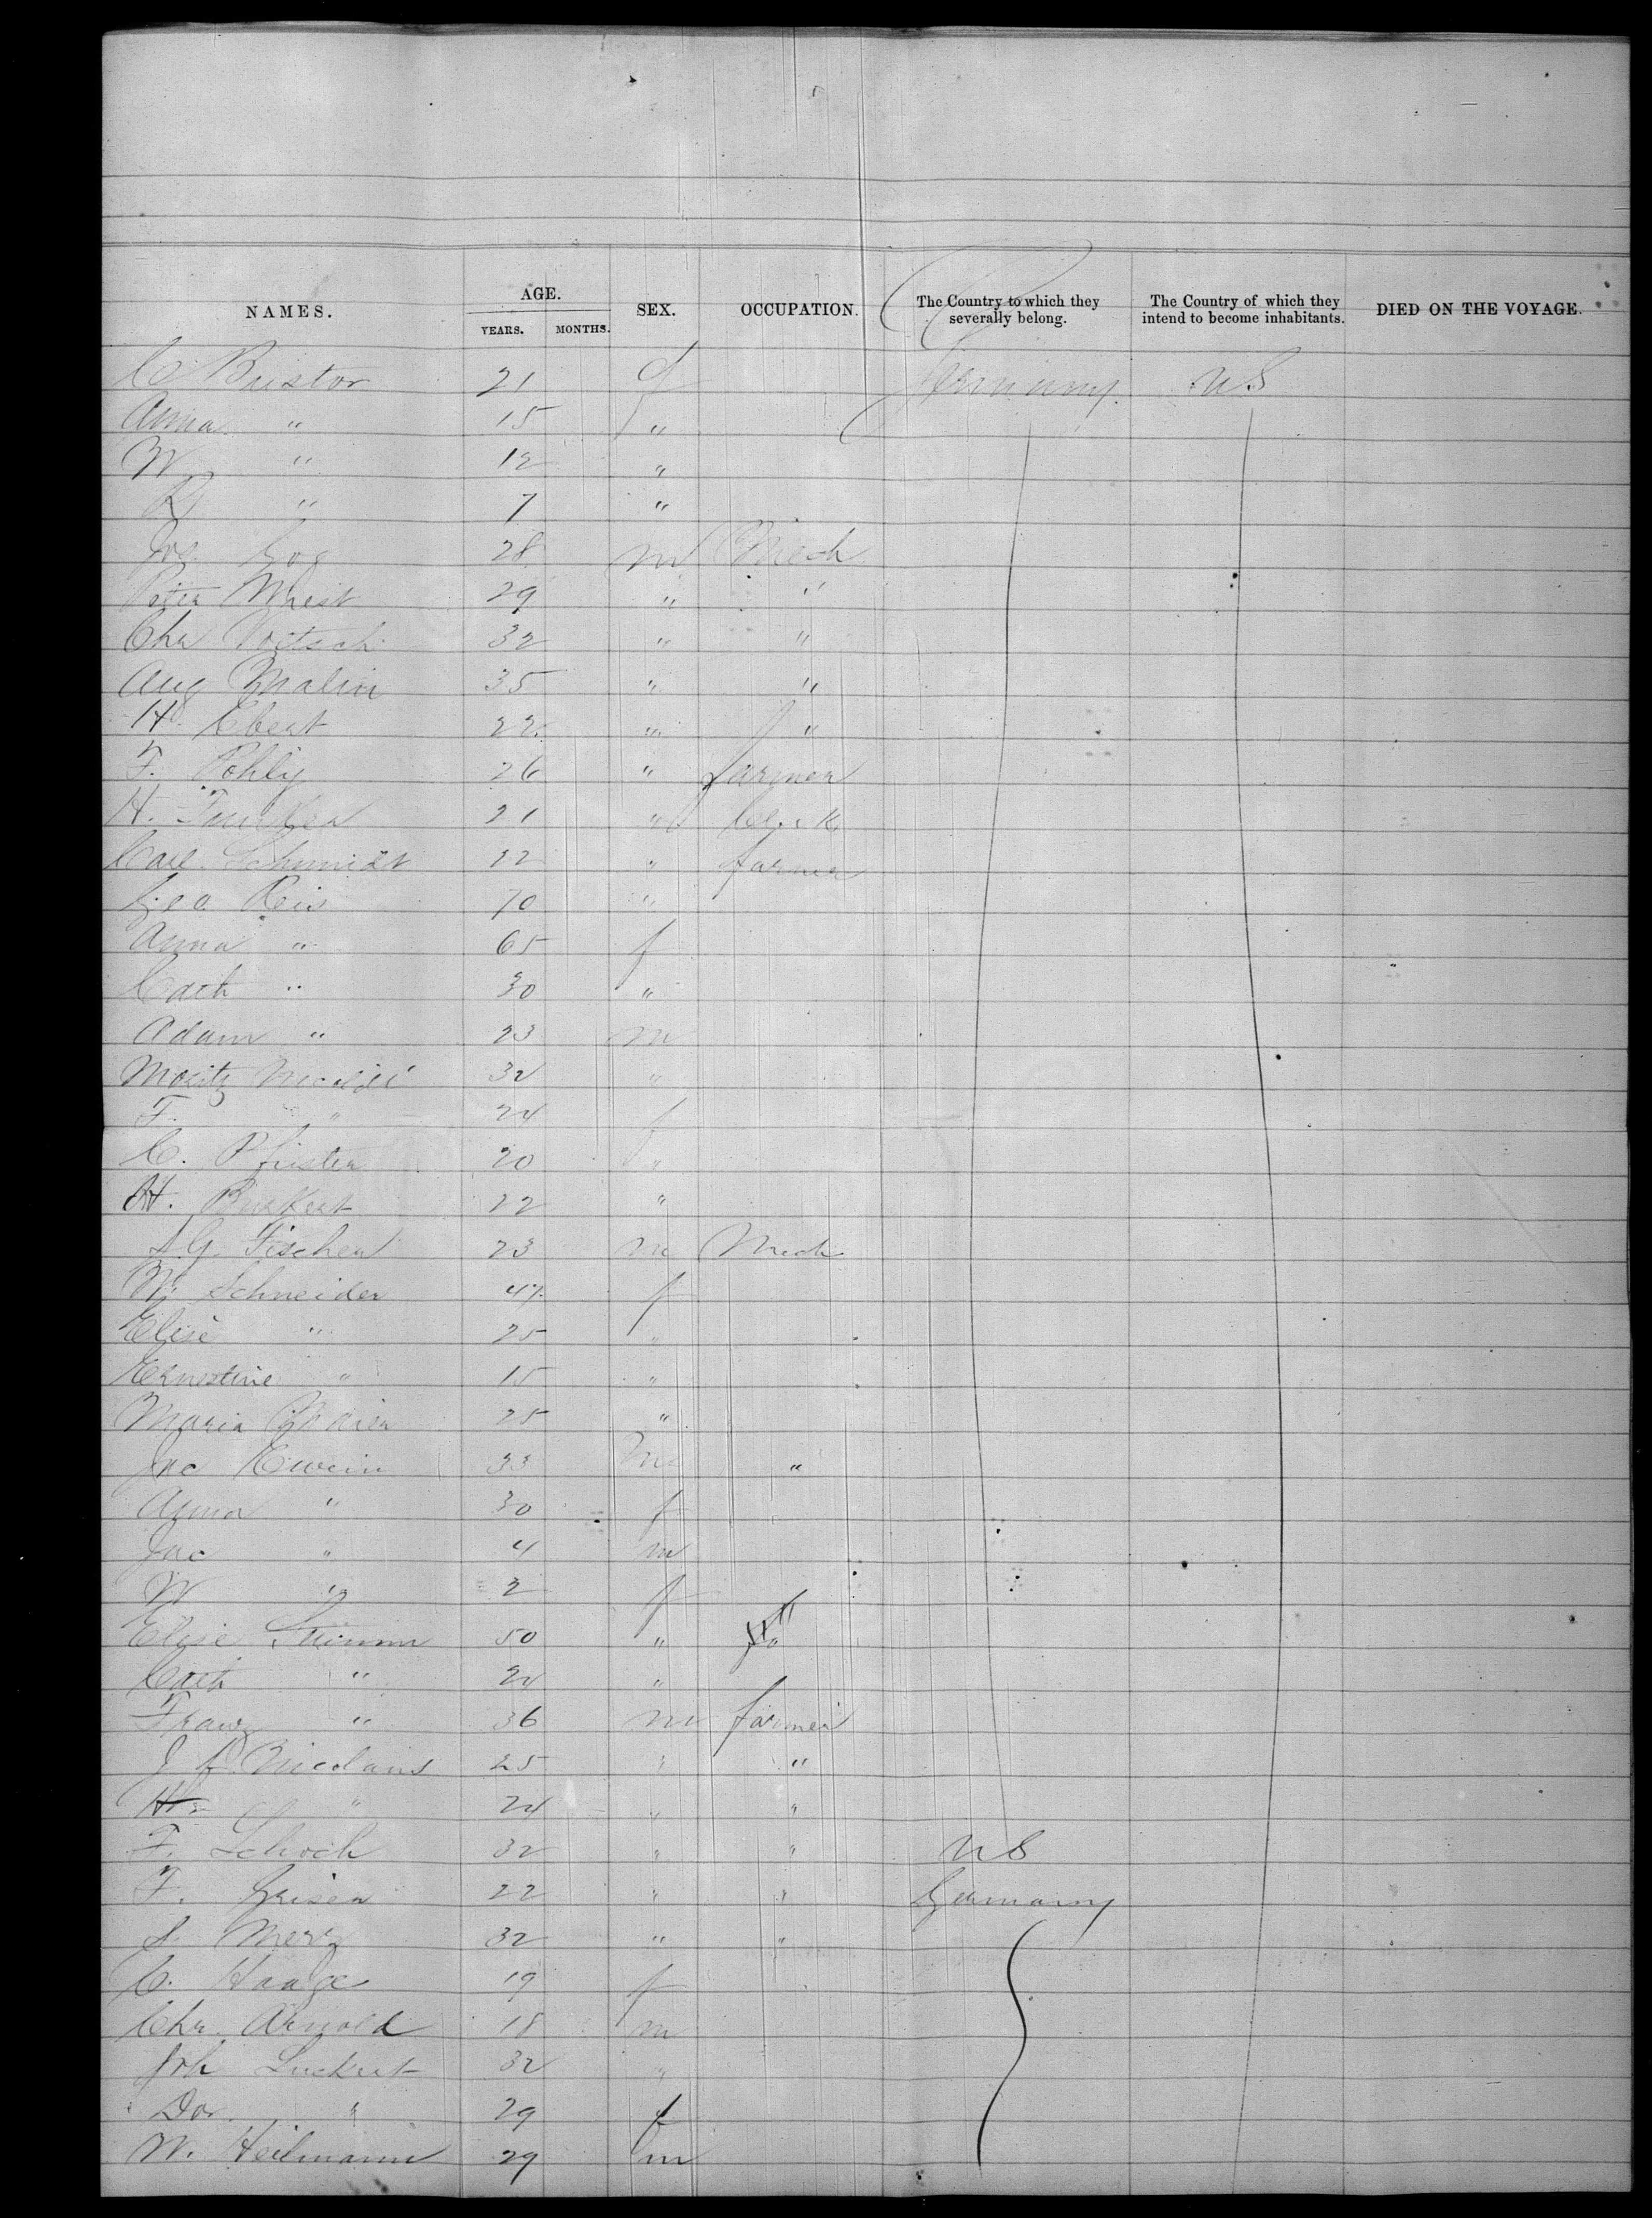 NAMES. AGE. SEX. OCCUPATION. The Country to which they severally belong. The Country of which they intend to become inhabitants. DIED ON THE VOYAGE.
YEARS. MONTHS.
C 21 f Germany U S
Anna " 15 "
W " 12 "
R " 7 "
28 m Mech
Peter 29 " "
Chr 32 " "
Aug Malin 35 " "
H. Ebert 22 " "
F. Pohly 26 " farmer
H. 21 " Clerk
Carl Schmidt 22 " farmer
Geo Reis 70 "
Anna " 65 f
Cath " 30 "
Adam " 23 m
Moritz 32 "
F. " 24 f
C. Pfister 20 "
H. Burkert 22 "
G. Fischer 23 m Mech
W. Schneider 47 f
Elise " 25 "
Ernestine " 15 "
Maria Maier 25 "
Jac 33 m "
Anna " 30 f
Jac " 4 m
W " 2 f
Elise 50 "
Cath " 24 "
Franz " 36 m farmer
J Nicolaus 25 " "
" 24 " "
F. Schoch 32 " " U S
F. 22 " " Germany
S. Merz 32 " "
C. Haage 19 f
Chr. Arnold 18 m
Joh Luckert 32 "
Dor. " 29 f
W. Heilmann 29 m